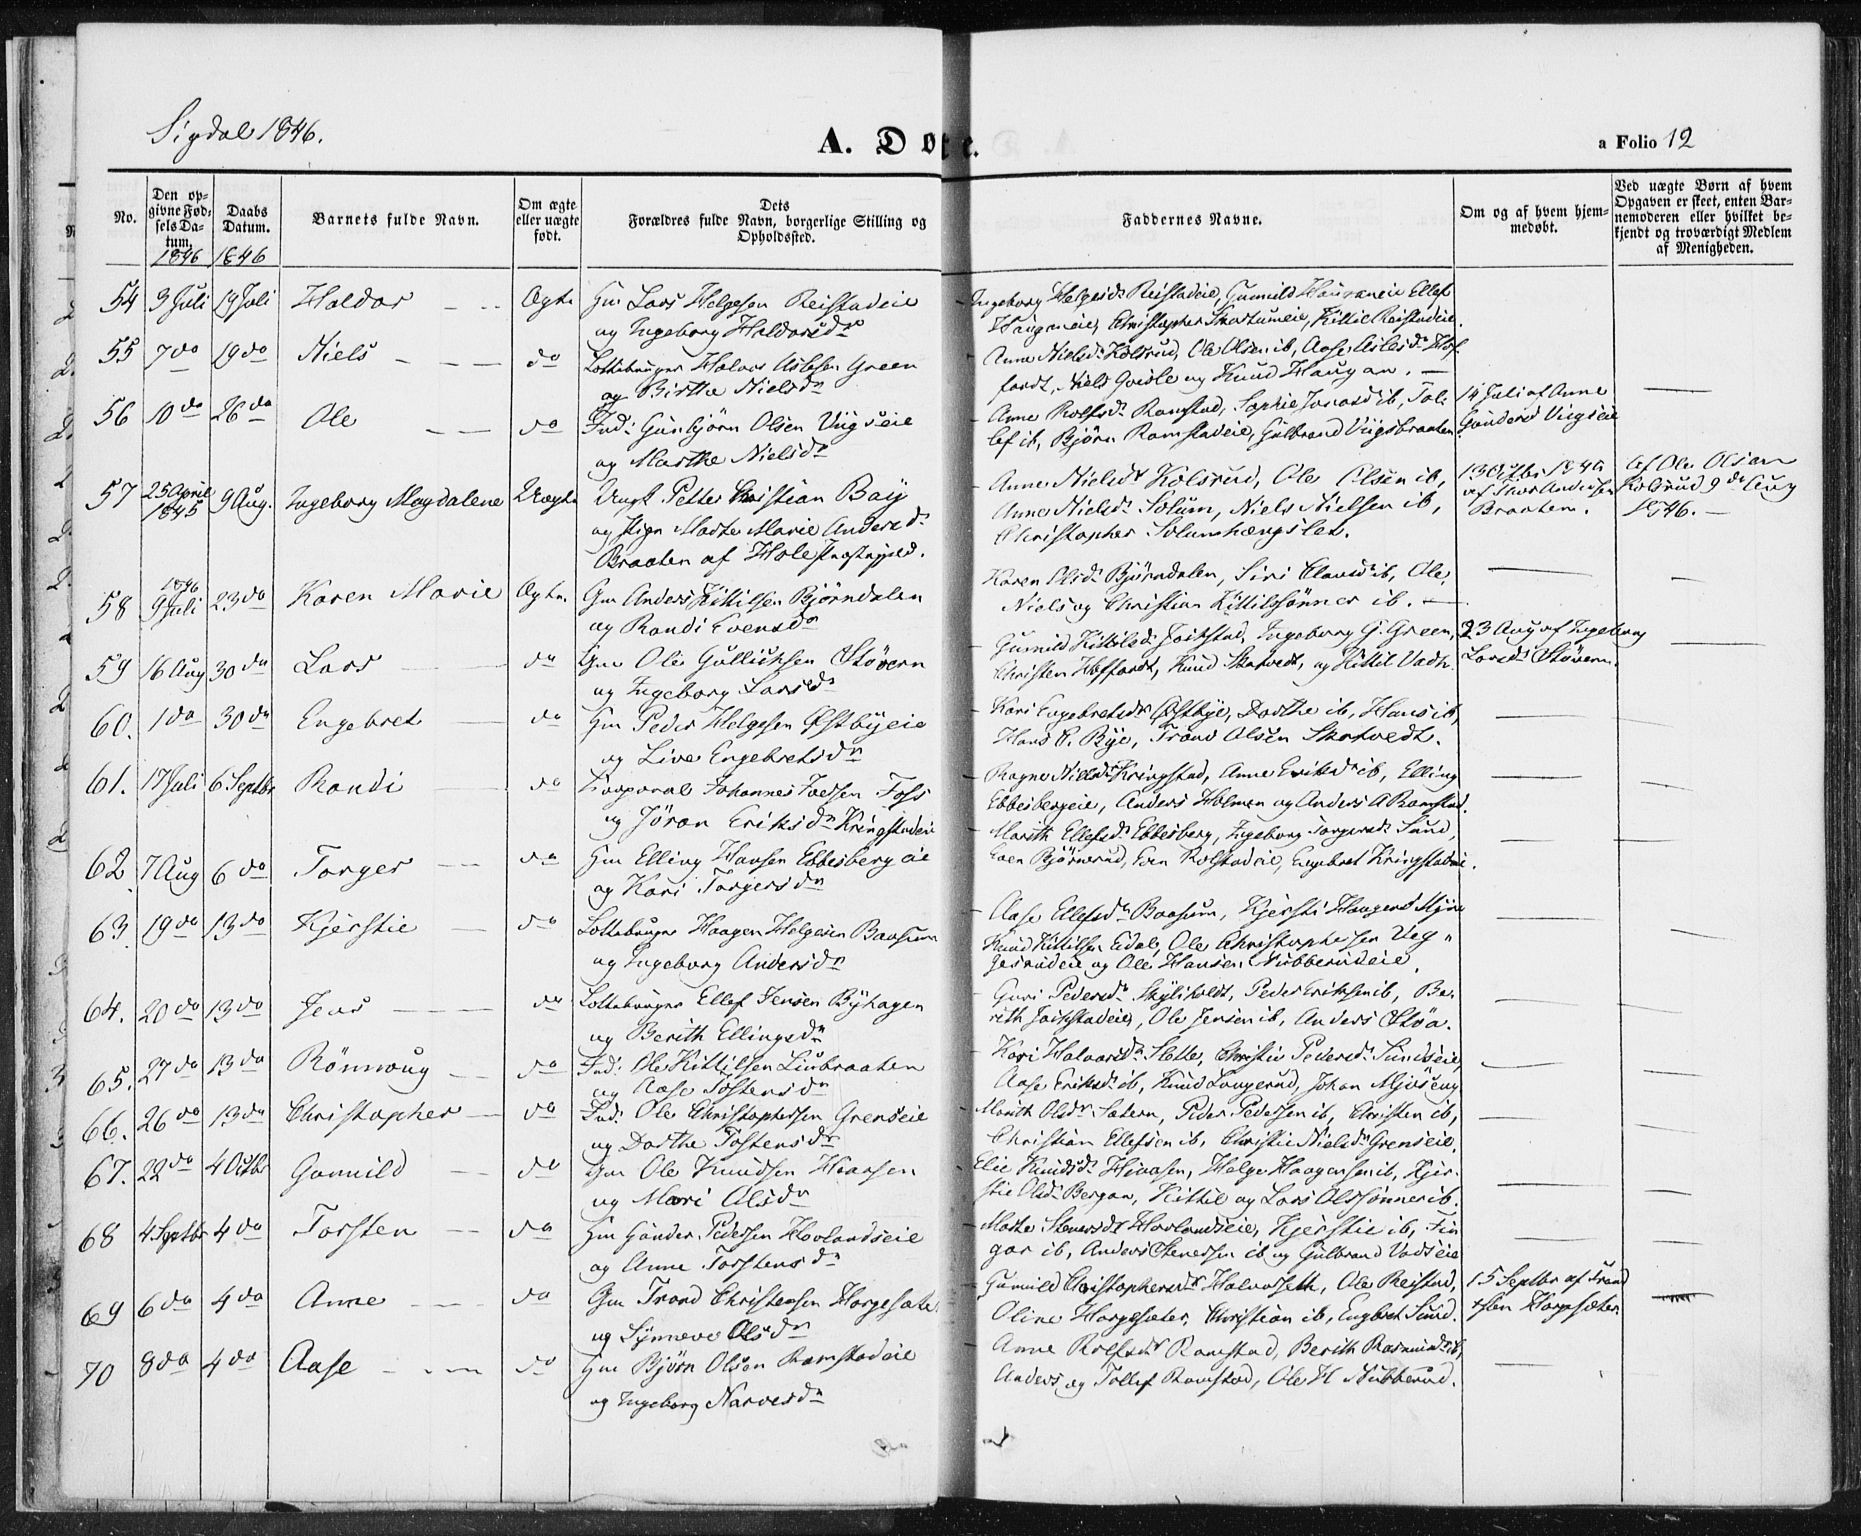 Sigdal 1846.
A. Døbte.
a Folio 12
No.
Den op-
givne Fød-
sels Da-
tum.
1846
Daabs
Datum.
1846
Barnets fulde Navn.
Om ægte
eller uægte
født.
Dets
Forældres fulde Navn, borgerlige Stilling og
Opholdssted.
Faddernes Navne.
Om og af hvem hjem-
medøbt.
Ved uægte Børn af hvem
Opgaven er skeet, enten Bar-
nemoderen eller hvilket be-
kjendt og troværdigt Medlem
af Menigheden.
54 3 Juli 19 Juli Haldor Ægte Gm Lars Helgesen Reistadeie
og Ingeborg Haldorsdr
Ingeborg Helgesdr Reistadeie, Gunnild Hauganeie Ellef
Hauganeie, Christopher Skartumeie, Kittil Reistadeie.
55 7 do 19 do Niels do Lottebruger Halvor Aslesen Green
og Birthe Nielsdr
Anne Nielsdr Kolsrud, Ole Olsen ib, Aase Aslesdr Hof
fardt, Niels Qvisle og Knud Haugan.
56 10 do 26 do Ole do Ind: Gunbjörn Olsen Viigseie
og Marthe Nielsdr
Anne Rolfsdr Ramstad, Sophie Jonasd ib, Tol-
lef ib, Björn Ramstadeie, Gulbrand Viigsbraaten
14 Juli af Anne
Gunders Viigseie
57 25 April
1845 9 Aug. Ingeborg Magdalene Uægte Ungk Petter Christian Bay
og Pigen Marte Marie Andersdr
Braaten af Hole Præstegjeld.
Anne Nielsdr Kolsrud, Ole Olsen ib,
Anne Nielsdr Solum, Niels Nielsen ib,
Christopher Solumhængslet.
Braaten.
af Ole Olsen
Kolsrud 9de Aug
1846.
58 1846
9 Juli 23 do Karen Marie Ægte. Gm Anders Kittilsen Björndalen
og Randi Evensdr
Karen Olsdr Björndalen, Siri Clausd ib, Ole,
Niels og Christian Kittilssönner ib.
59 16 Aug 30 do Lars do Gm Ole Gulliksen Stövern
og Ingeborg Larsdr
Gunnild Kittilsdr Jokstad, Ingeborg G. Green,
Christen Hoffardt, Knud Skatvedt, og Kittil Vadh.
23 Aug af Ingeborg
Larsdr Stövern.
60. 1 do 30 do Engebret do Gm Peder Helgesen Østbyeie
og Live Engebretsdr
Kari Engebretsdr Østbye, Dorthe ib, Hans ib,
Hans P. Bye, Trond Olsen Skatvedt.
61. 17 Juli 6 Septbr Randi do Corporal Johannes Joesen Foss
og Jöran Eriksdr Kringstadeie
Ragne Nielsdr Kringstad, Anne Eriksdr ib, Elling
Ebbesbergeie, Anders Holmen og Anders A Ramstad.
62 7 Aug 6 do Torger do Gm Elling Hansen Ebbesbergeie
og Kari Torgersdr
Marith Ellefsdr Ebbesberg, Ingeborg Torgersdr Sund,
Even Björnerud, Even Kolstadeie, Engebret Kringstadeie.
63 19 do 13 do Kjerstie do Lottebruger Haagen Helgesen Baasum
og Ingeborg Andersdr
Aase Ellefsdr Baasum, Kjersti Haagensd Myra
Knud Kittilsen Eidal, Ole Christophersen Veg-
gesrudeie og Ole Hansen Nubberudeie.
64. 20 do 13 do Jens do Lottebruger Ellef Jensen Byhagen
og Berith Ellingsdr
Guri Pedersdr Skyliholdt, Peder Eriksen ib, Be-
rith Jokstadeie, Ole Jensen ib, Anders Stöa.
65. 27 do 13 do Rönnoug do Ind: Ole Kittilsen Liubraaten
og Aase Tostensdr
Kari Halvorsdr Slette, Christie Pedersdr Sundseie,
Aase Eriksdr ib, Knud Langerud, Johan Mjöseng
66. 26 do 13 do Christopher do Ind: Ole Christophersen Grenseie
og Dorthe Tostensdr
Marith Olsdr Sætern, Peder Pedersen ib, Christen ib,
Christian Ellefsen ib, Christie Nielsdr Grenseie.
67. 22 do 4 Octbr Gunnild do Gm Ole Knudsen Hiaasen
og Mari Olsdr
Elie Knudsdr Hiaasen, Helge Haagensen ib, Kjer-
stie Olsdr Bergan, Kittil og Lars Olssönner ib.
68 4 Septbr 4 do Torsten do Gm Gunder Pedersen Hovlandseie
og Anne Torstensdr
Marthe Stenersdr Hovlandseie, Kjerstie ib, Fin
gar ib, Anders Stenersen ib og Gulbrand Vadseie
69 6 do 4 do Anne do Gm Trond Christensen Horgesæter
og Synneve Olsdr
Gunnild Christophersdr Halvorseth, Ole Reistad,
Oline Horgesæter, Christian ib, Engebret Sund.
15 Septbr af Trond
Horgesæter
70 8 do 4 do Aase do Gm Björn Olsen Ramstadeie
og Ingeborg Narvesdr
Anne Rolfsdr Ramstad, Berith Rasmusdr ib,
Anders og Tollef Ramstad, Ole H Nubberud.